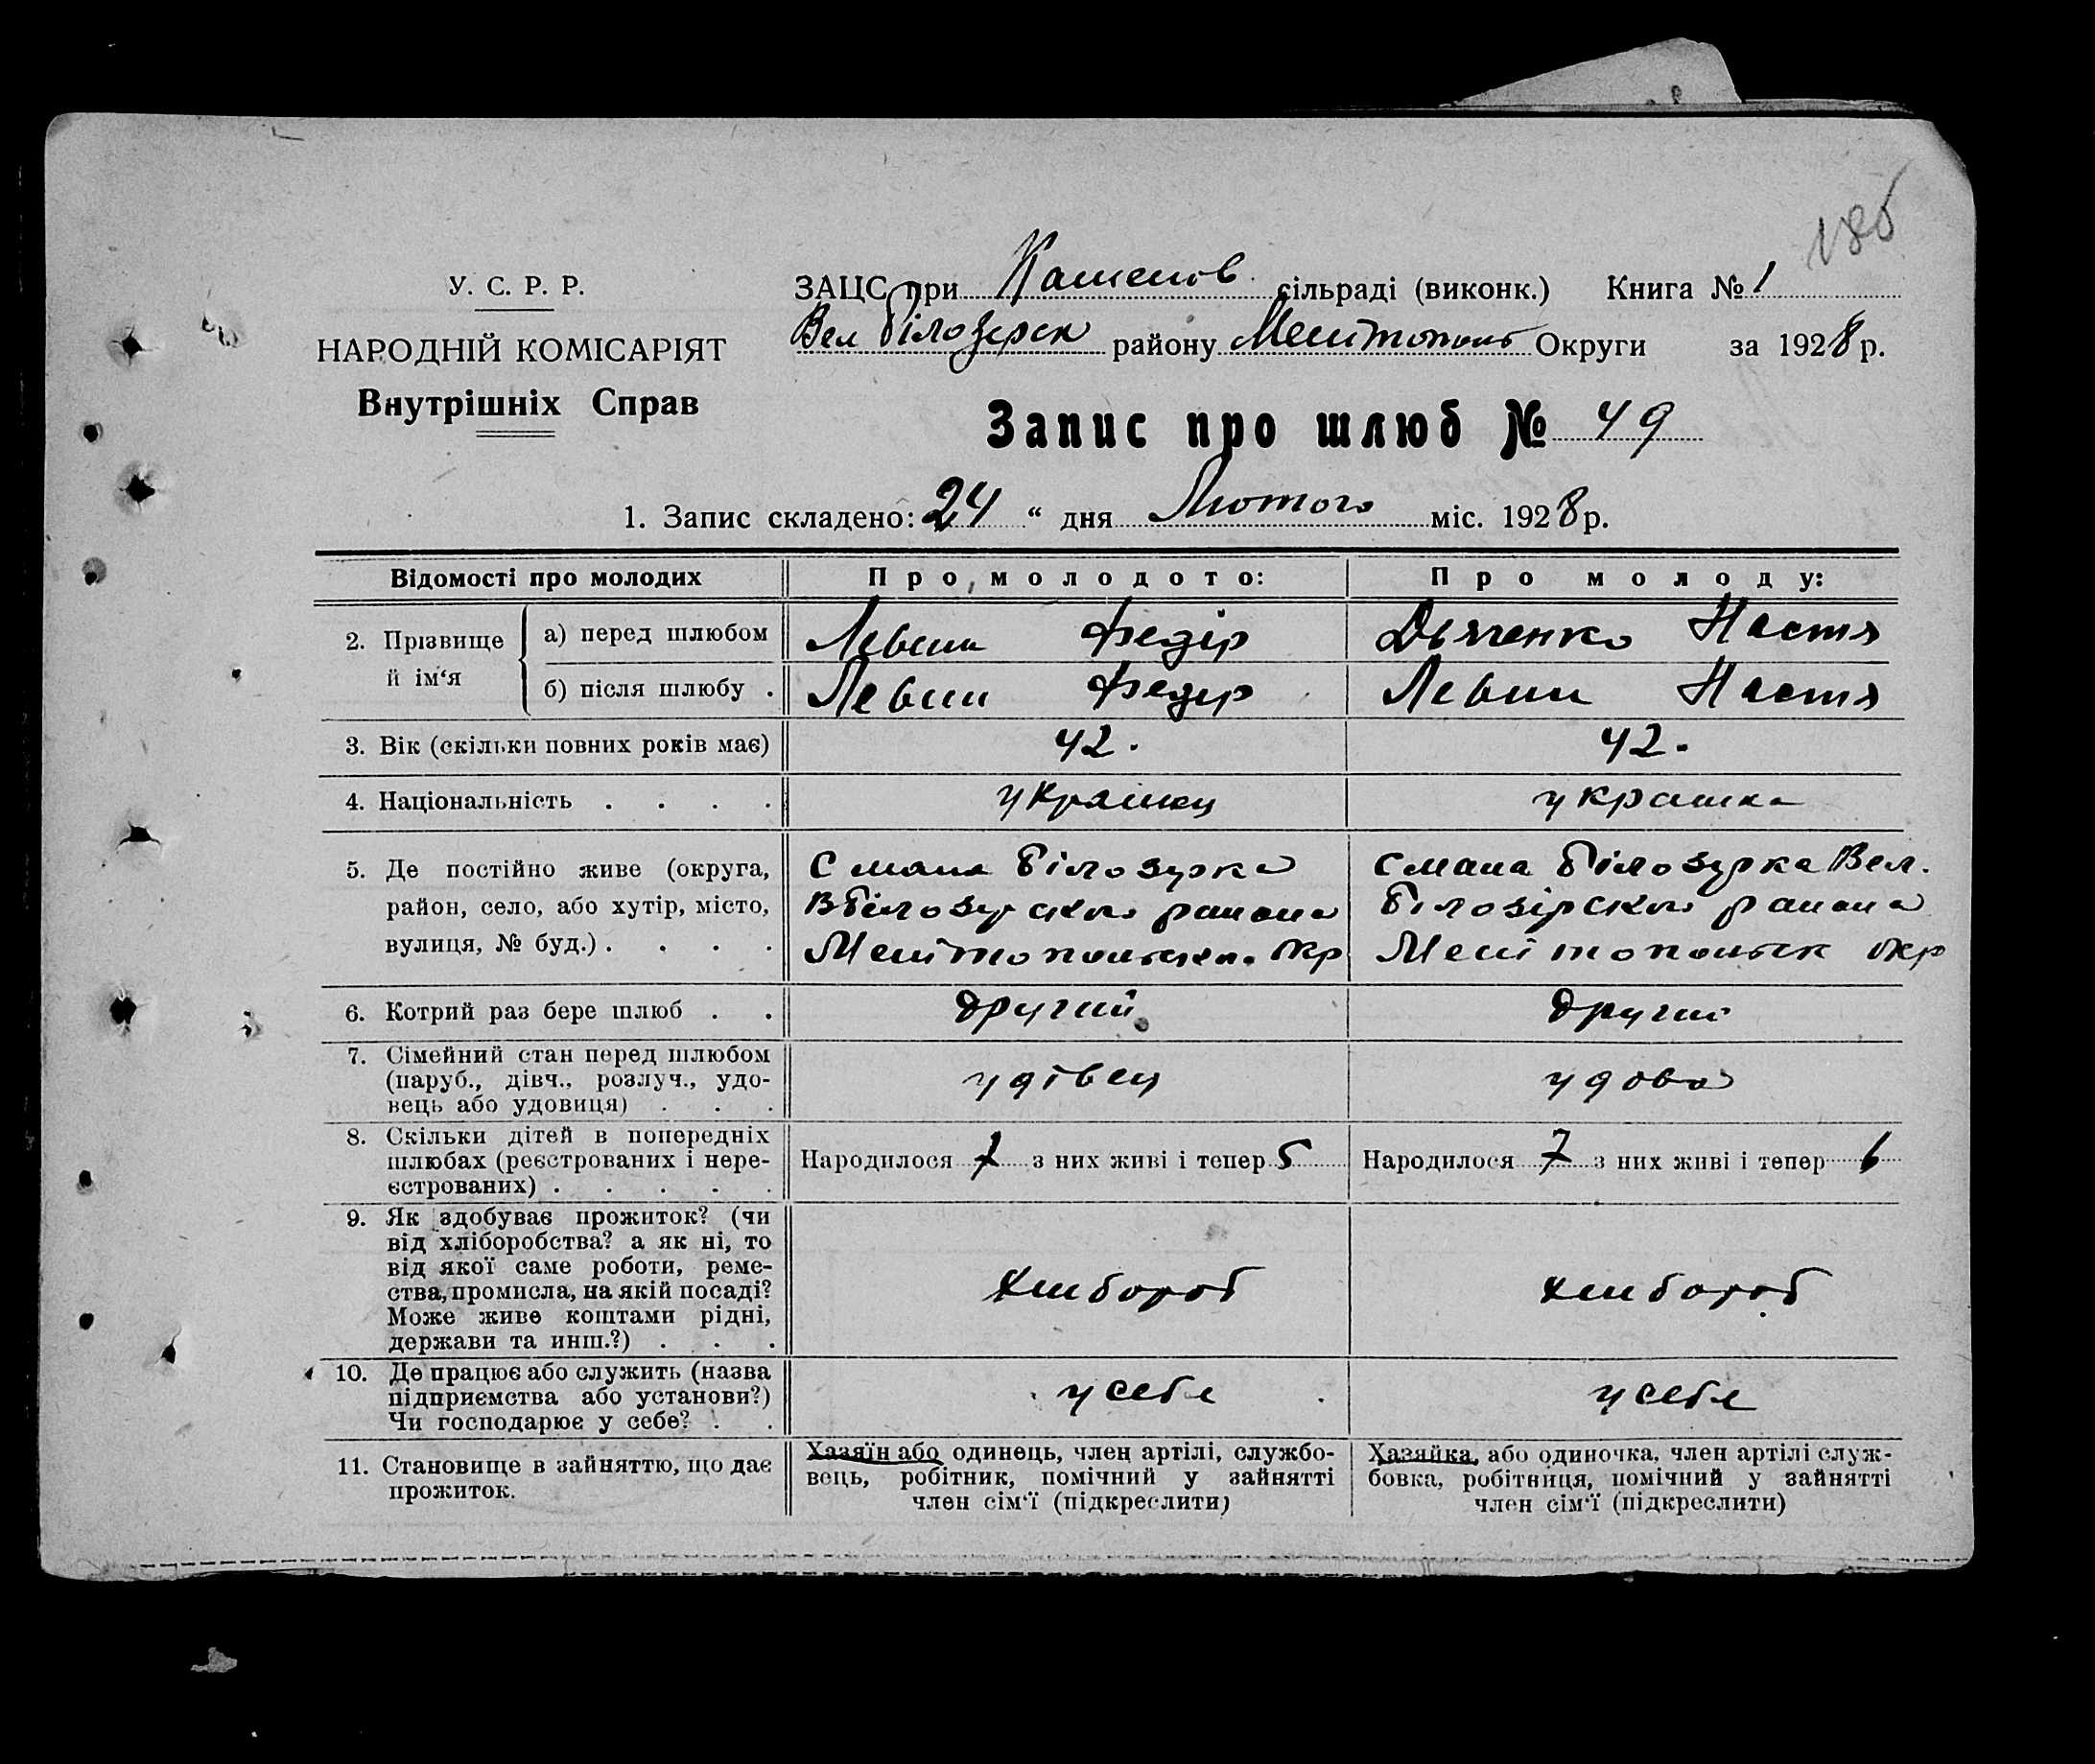 186
У. С. Р. Р.
НАРОДНІЙ КОМІСАРІЯТ
Внутрішніх Справ
ЗАЦС при Кашенов сільраді (виконк.) Книга № 1
Вел Білозерск району Мелітополь Округи за 1928 р.
Запис про шлюб № 49
1. Запис складено: 24 “ дня Лютого міс. 1928 р.
Відомості про молодих Про молодого: Про молоду:
2. Прізвище й ім‘я
а) перед шлюбом Левши Федір Дьяченко Настя
б) після шлюбу . Левши Федір Левши Настя
3. Вік (скільки повних років має) 42. 42.
4. Національність . . . . украінец украінка
5. Де постійно живе (округа, район, село, або хутір, місто, вулиця, № буд.) . . . .
С мала Білозурка
ВБілозурскою района
Мелітопольско. Окр
С мала Білозурка Вел.
Білозірскою района
Мелітопольск Окр
6. Котрий раз бере шлюб . . другий другий
7. Сімейний стан перед шлюбом
(паруб., дівч., розлуч., удо-
вець або удовиця) . . . удівец удова
8. Скільки дітей в попередніх
шлюбах (реєстрованих і нере-
єстрованих) . . . . .
Народилося 7 з них живі і тепер 5
Народилося 7 з них живі і тепер 6
9. Як здобуває прожиток? (чи
від хліборобства? а як ні, то
від якої саме роботи, реме-
ства, промисла, на якій посаді?
Може живе коштами рідні,
держави та инш.?) . . . хлибороб хлибороб
10. Де працює або служить (назва
підприємства або установи?)
Чи господарює у себе? . . у себе у себе
11. Становище в зайняттю, що дає
прожиток.
Хазяїн або одинець, член артілі, службо-
вець, робітник, помічний у зайнятті
член сім‘ї (підкреслити)
Хазяйка, або одиночка, член артілі служ-
бовка, робітниця, помічний у зайнятті
член сім‘ї (підкреслити)